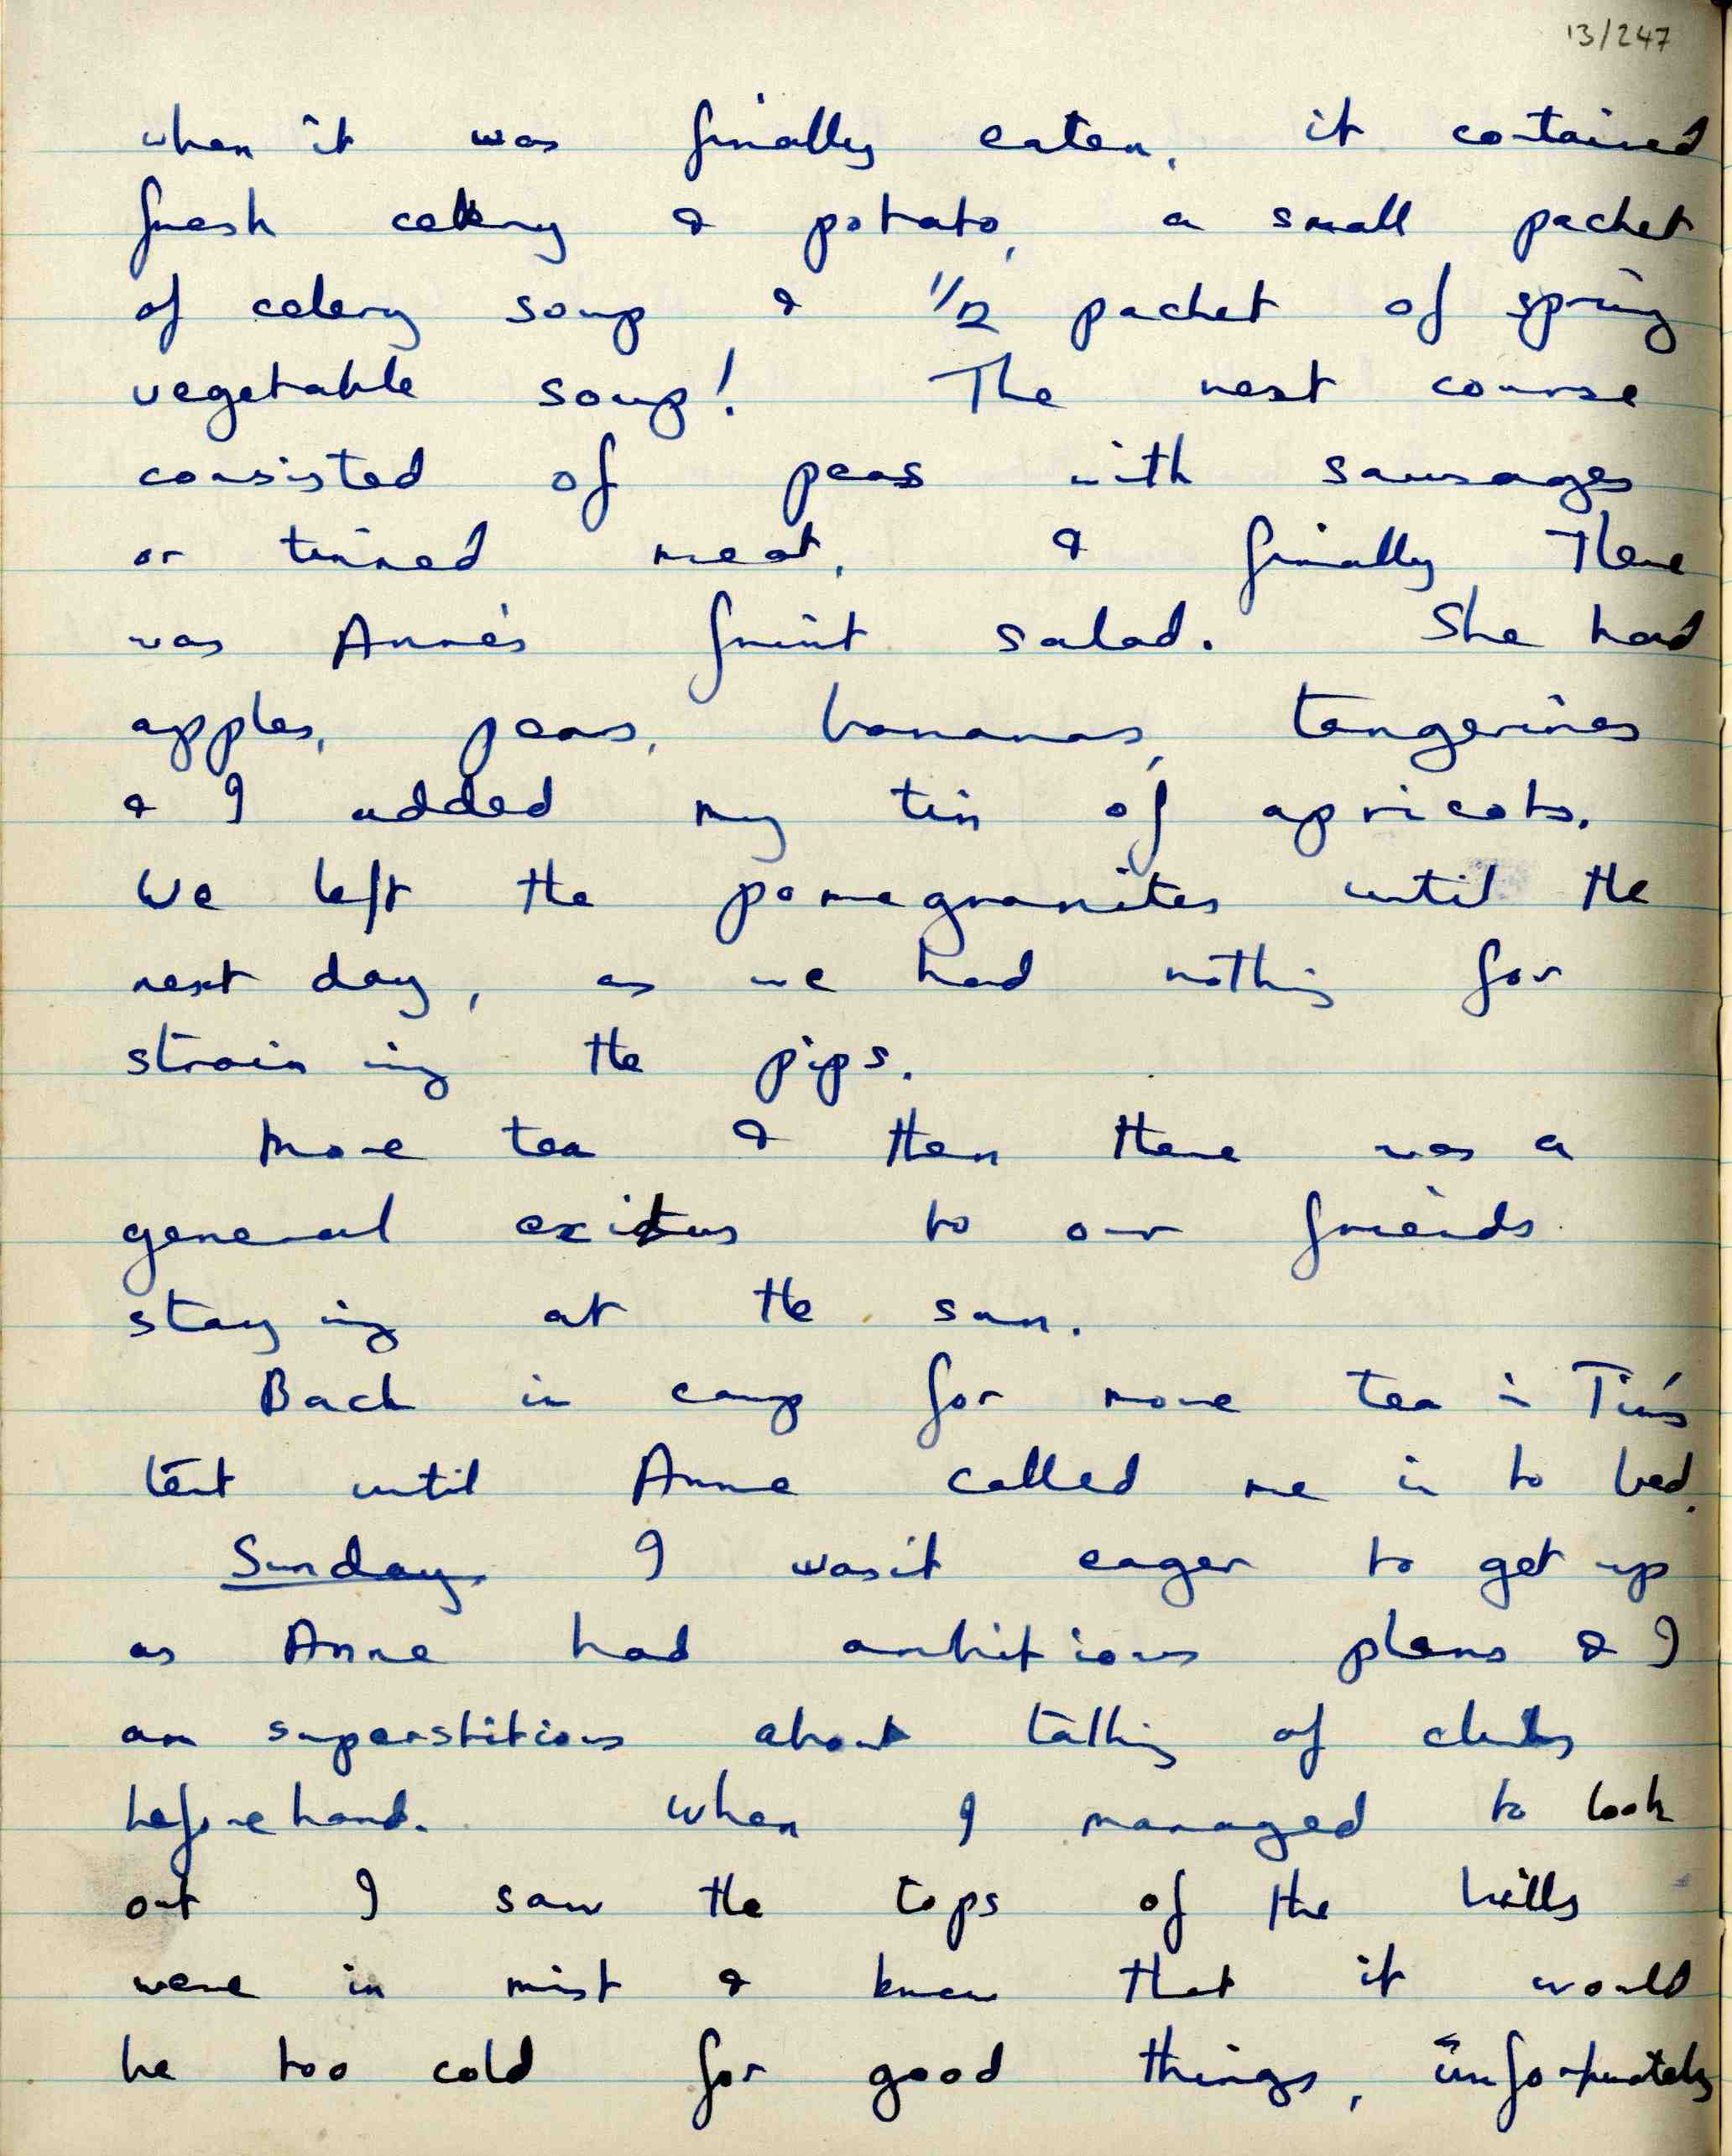 13/247
when it was finally eaten, it contained
fresh celery & potato, a small packet
of celery soup & 1/2 packet of spring
vegetable soup! The next course
consisted of peas with sausages
or tinned meat, & finally there
was Anne's fruit salad. She had
apples, pears, bananas, tangerines
& I added my tin of apricots.
We left the pomegranites until the
next day, as we had nothing for
straining the pips.
More tea & then there was a
general exitus to our friends
staying at the san.
Back in camp for more tea in Tim's
tent until Anne called me in to bed.
Sunday I wasn't eager to get up
as Anne had ambitious plans & I
am superstitious about talking of climbs
beforehand. When I managed to look
out I saw the tops of the hills
were in mist & knew that it would
be too cold for good things, unfortunately